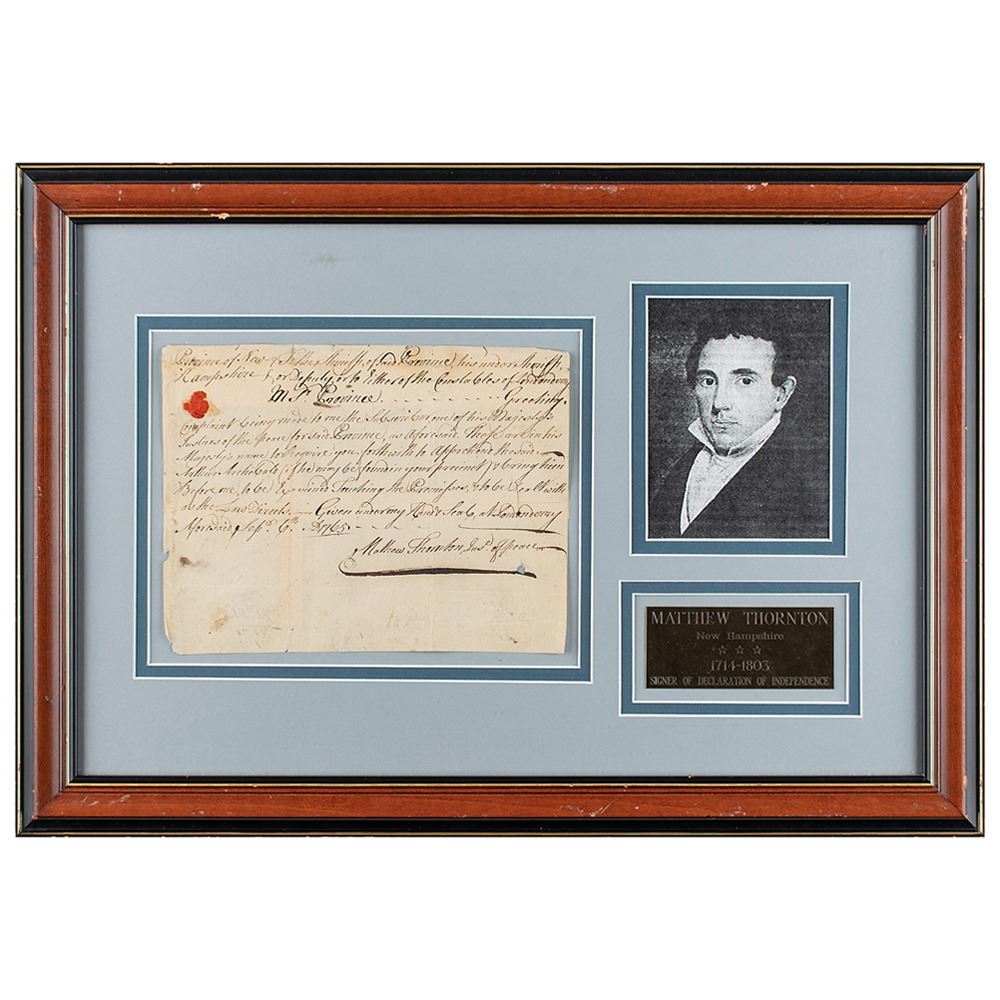 Province of New- } To the Sheriff, of said Province his under Sheriff,
Hampshire } or Deputy or to Either of the Constables of Londonderry
in Sd Province. - - - - - - - Greeting.
Complaint being made to me the Subscriber one of his Majesty's
Justices of the Peace for said Province, as aforesaid. These are in his
Majesty's name to Require you forthwith to Apprehend the said
Arthur Archibald (if he may be found in your precinct) & bring him
Before me to be Examined Touching the Premises, & to be Dealt with
as the Law Directs. — Given under my Hand & Seal, at Londonderry
Aforesaid Sepr. 6th. D1765 - - -
Mathew Thornton, Jus. of Peace
MATTHEW THORNTON
New Hampshire
☆ ☆ ☆
1714-1803
SIGNER OF DECLARATION OF INDEPENDENCE